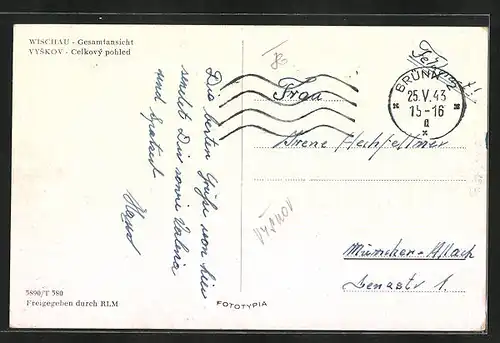 WISCHAU - Gesamtansicht
VYŠKOV - Celkový pohled
Die besten Grüße von hier
sendet Dir sowie Valeria
und
Hans
5890/T 580
Freigegeben durch RLM
FOTOTYPIA
Feldpost
BRÜNN
25.V.43
15-16
a
Frau
Irene Hechfellner
VYŠKOV
München-Allach
1.